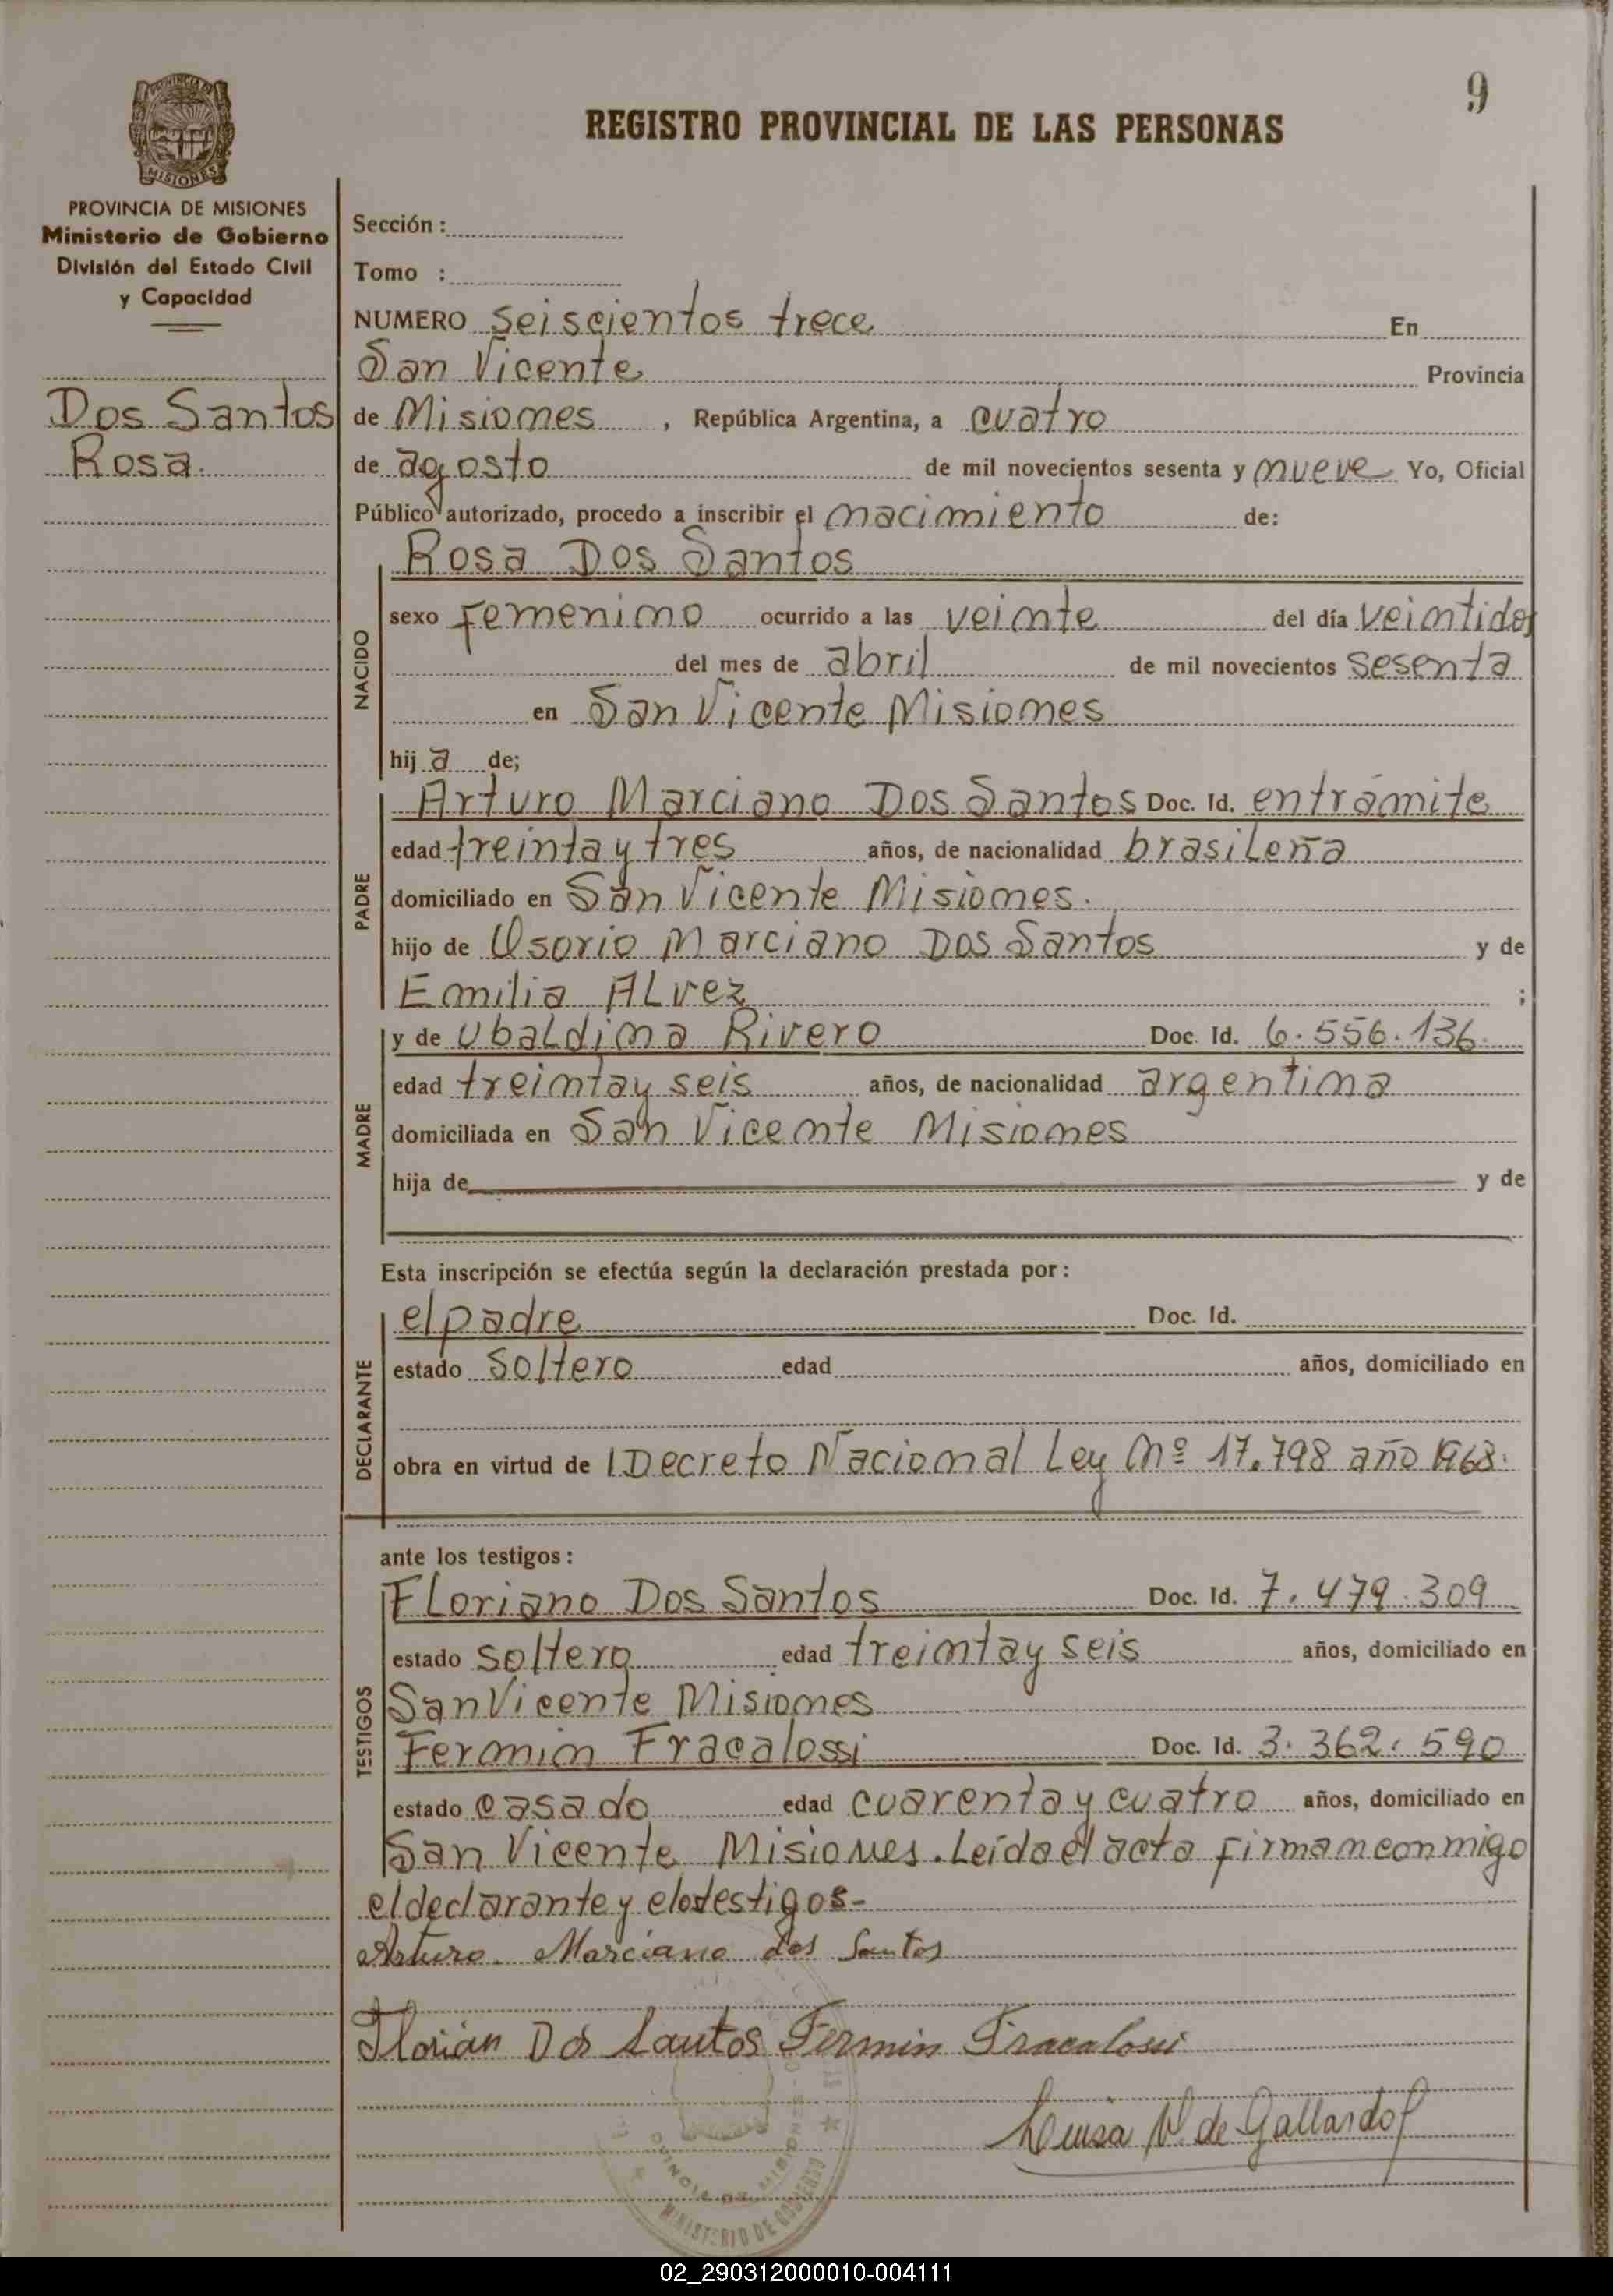 9
REGISTRO PROVINCIAL DE LAS PERSONAS
PROVINCIA DE
MISIONES
PROVINCIA DE MISIONES
Ministerio de Gobierno
División del Estado Civil
y Capacidad
Dos Santos
Rosa.
Sección :
Tomo :
NUMERO seiscientos trece En
San Vicente Provincia
de Misiones , República Argentina, a cuatro
de agosto de mil novecientos sesenta y nueve Yo, Oficial
Público autorizado, procedo a inscribir el nacimiento de:
NACIDO
Rosa Dos Santos
sexo femenino ocurrido a las veinte del día veintidos
del mes de abril de mil novecientos sesenta
en San Vicente Misiones
hij a de;
PADRE
Arturo Marciano Dos Santos Doc. Id. entrámite
edad treinta y tres años, de nacionalidad brasileña
domiciliado en San Vicente Misiones.
hijo de Osorio Marciano Dos Santos y de
Emilia Alvez ;
MADRE
y de Ubaldina Rivero Doc. Id. 6.556.136.
edad treintay seis años, de nacionalidad argentina
domiciliada en San Vicente Misiones
hija de y de
Esta inscripción se efectúa según la declaración prestada por :
DECLARANTE
el padre Doc. Id.
estado soltero edad años, domiciliado en
obra en virtud de l Decreto Nacional Ley Nº 17.798 año 1968.
ante los testigos :
TESTIGOS
Floriano Dos Santos Doc. Id. 7.479.309
estado soltero edad treintay seis años, domiciliado en
San Vicente Misiones
Fermin Fracalossi Doc. Id. 3.362.590
estado casado edad cuarenta y cuatro años, domiciliado en
San Vicente Misiones. Leída el acta firman conmigo
el declarante y testigos-
Arturo Marciano dos Santos
Florián Dos Santos Fermin Fracalossi
Luisa V. de Gallardo
MINISTERIO DE GOBIERNO
02_290312000010-004111